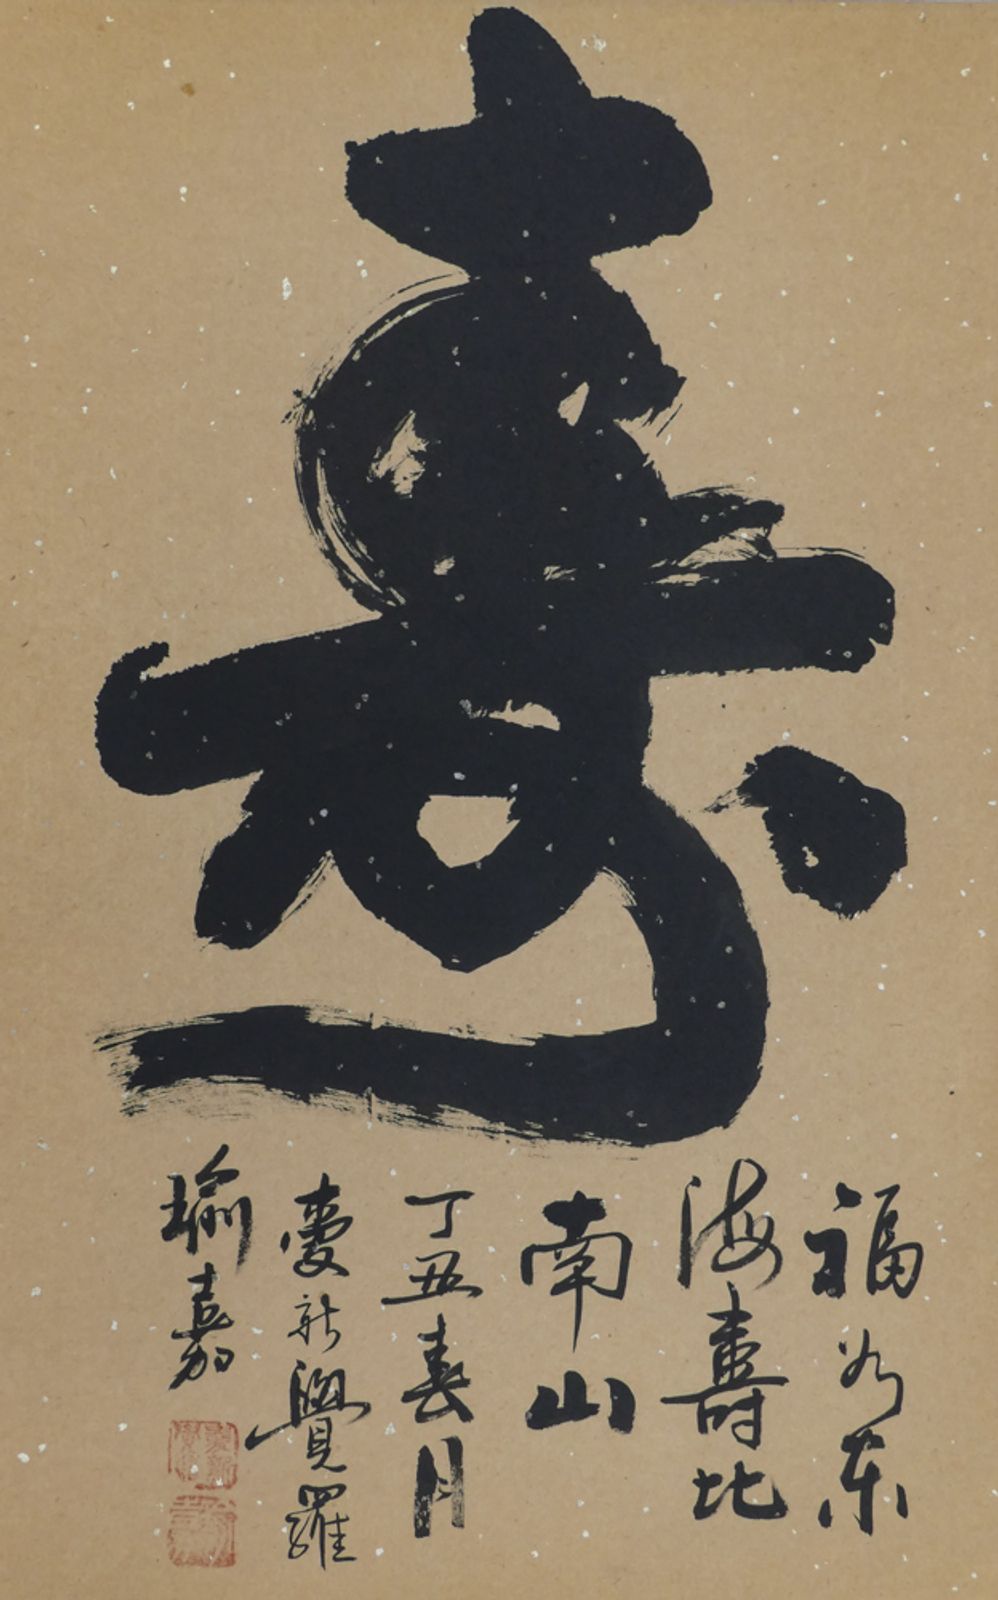 壽
福如东
海壽比
南山
丁丑春月
愛新覺羅
瑜嘉